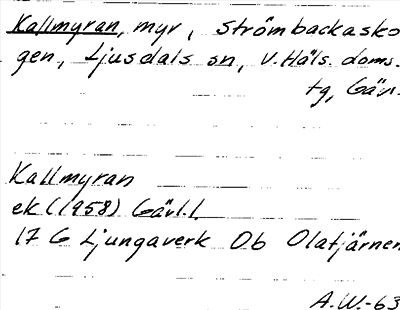 Kallmyran, myr, Strömbackasko
gen, Ljusdals sn, V. Häls. doms.
tg, Gävl.
Kallmyran
ek (1958) Gävl.l.
17 G Ljungaverk Ob Olatjärnen
A.W.-63